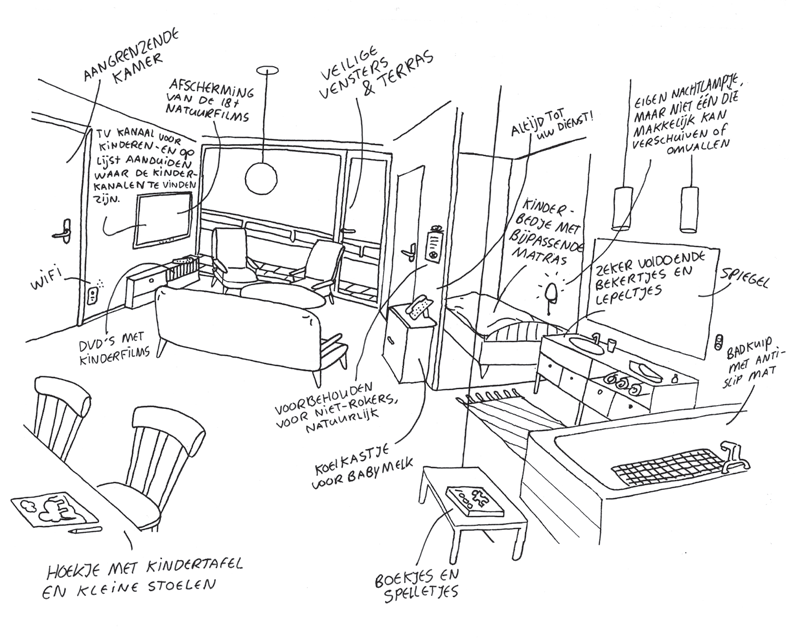 AANGRENZENDE
KAMER
AFSCHERMING
VAN DE 18+
NATUURFILMS
VEILIGE
VENSTERS
& TERRAS
ALTIJD TOT
UW DIENST!
EIGEN NACHTLAMPJE,
MAAR NIET ÉÉN DIE
MAKKELIJK KAN
VERSCHUIVEN OF
OMVALLEN
TV KANAAL VOOR
KINDEREN-EN OP
LIJST AANDUIDEN
WAAR DE KINDER-
KANALEN TE VINDEN
ZIJN.
KINDER-
BEDJE MET
BIJPASSENDE
MATRAS
ZEKER VOLDOENDE
BEKERTJES EN
LEPELTJES
SPIEGEL
WIFI
DVD'S MET
KINDERFILMS
BADKUIP
MET ANTI-
SLIP MAT
VOORBEHOUDEN
VOOR NIET-ROKERS,
NATUURLIJK
KOELKASTJE
VOOR BABYMELK
1000
HOEKJE MET KINDERTAFEL
EN KLEINE STOELEN
BOEKJES EN
SPELLETJES